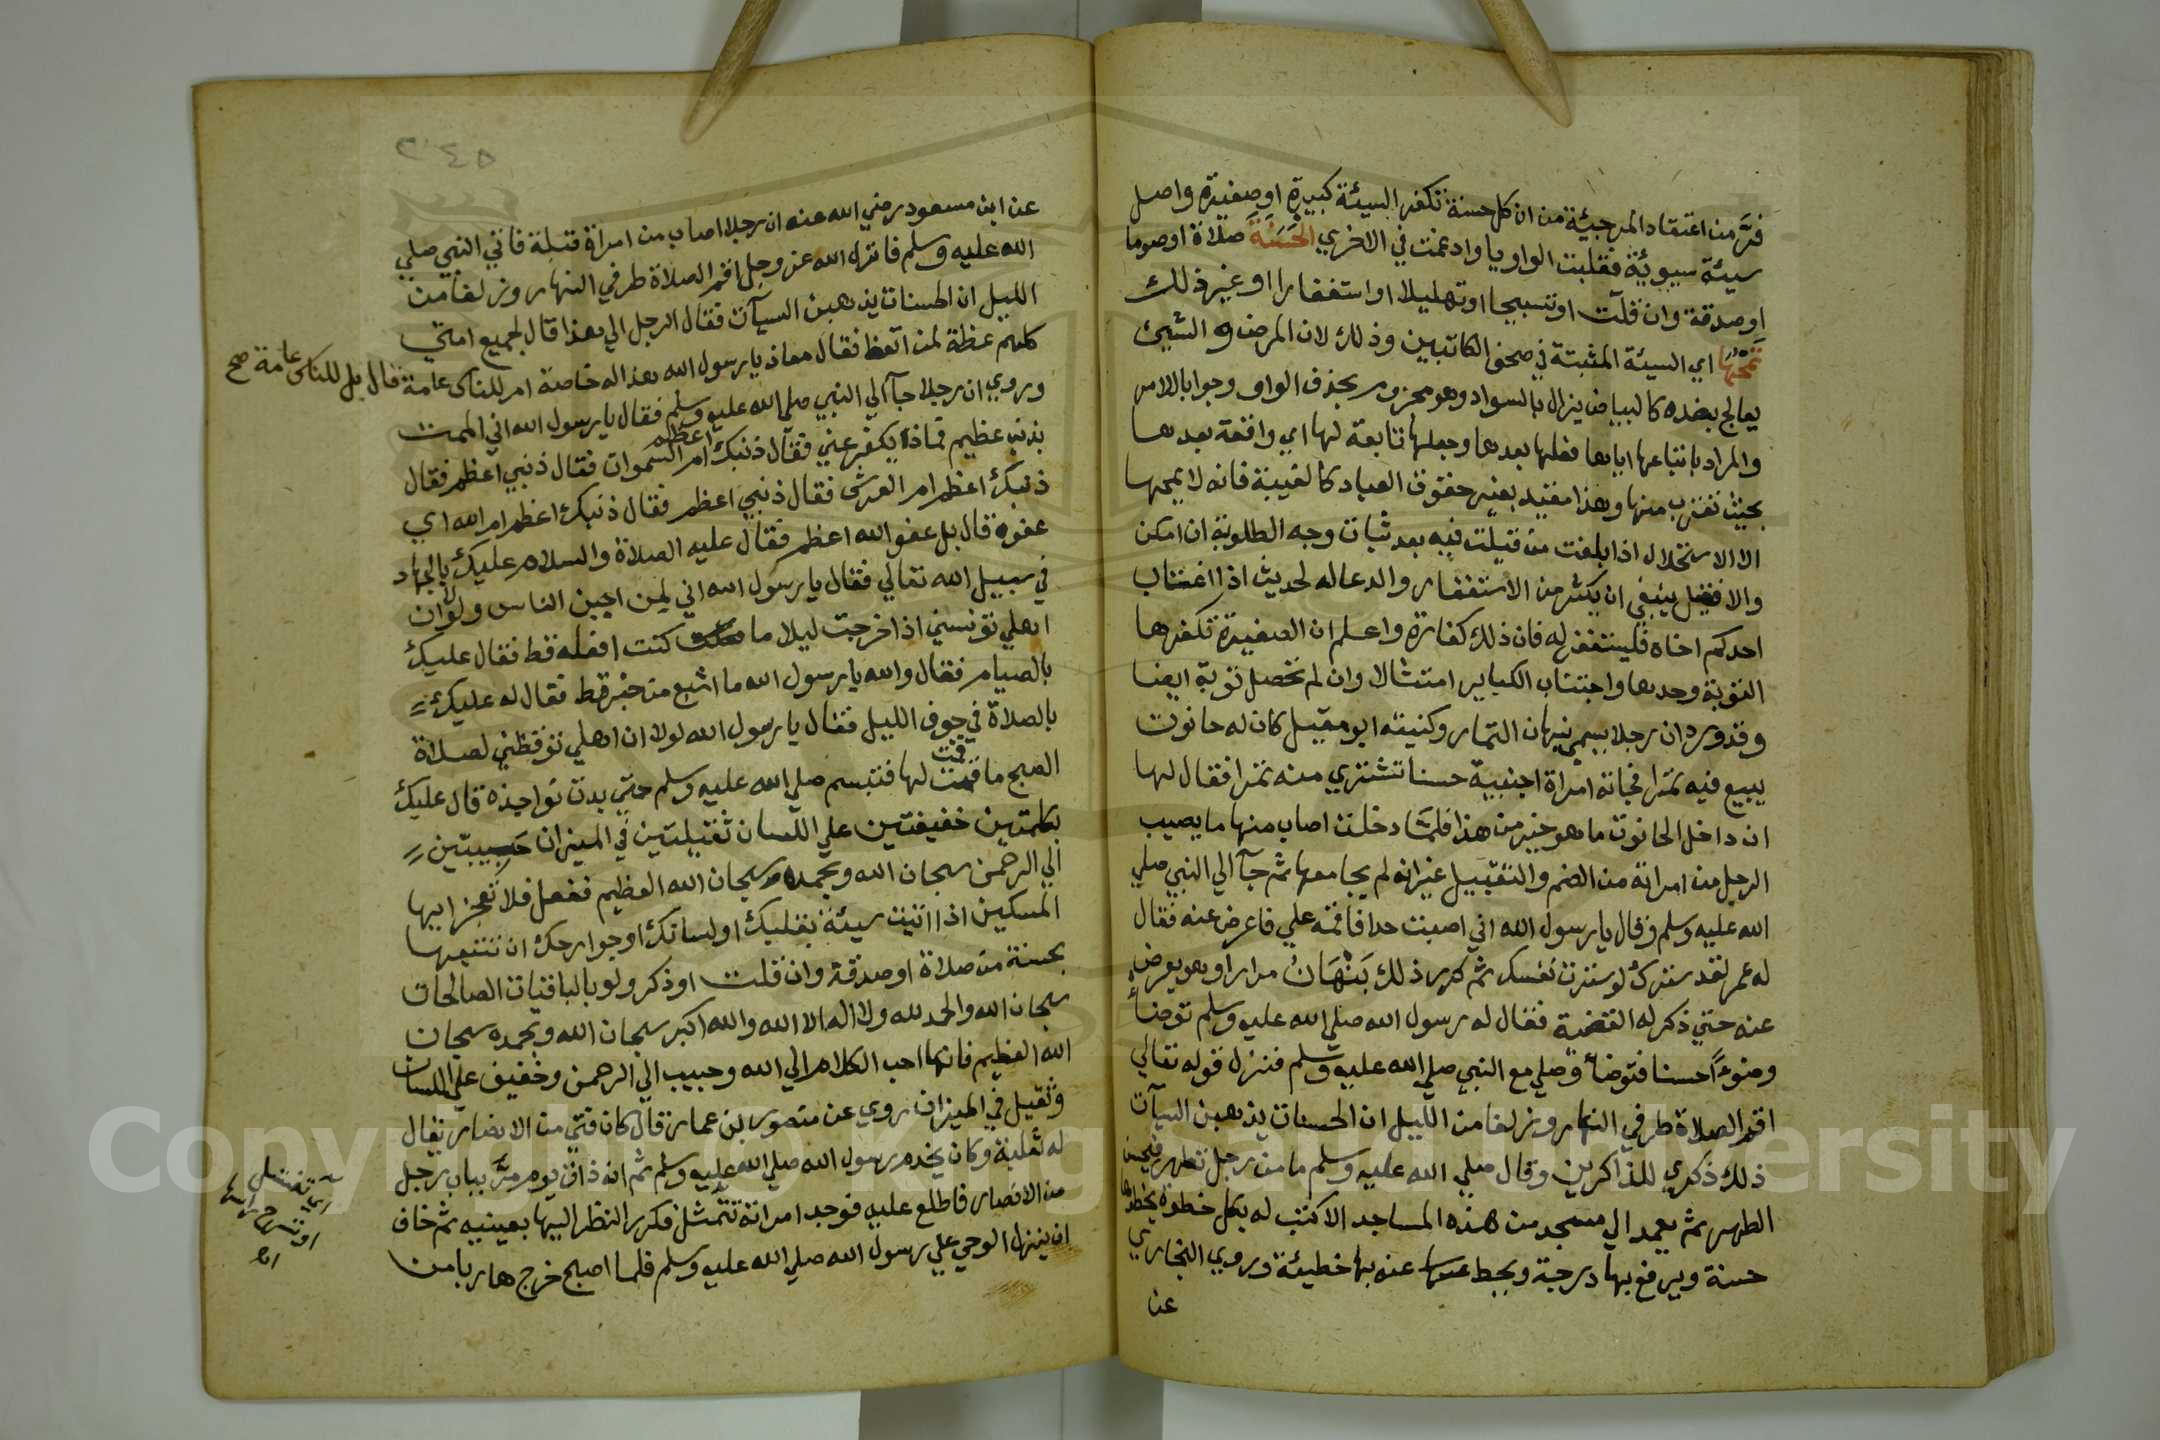 فر من اعتقاد المرجيئة من ان كل حسنة تكفر السيئة كبيرة او صغيرة واصل
سيئة سيوئة فقلبت الواو يا وادغمت في الاخري الحَسَنَةَ صلاة او صوما
او صدقة وان قلت او تسبيحا او تهليلا او استغفارا او غير ذلك
تَمْحُهَا اي السيئة المثبتة في صحف الكاتبين وذلك لان المرض و الشيئ
يعالج بضده كالبياض يزال بالسواد وهو مجزوم بحذف الواو وجوابا لامر
والمراد باتباعها اياها فعلها بعدها وجعلها تابعة لها اي واقعة بعدها
بحيث تقرب منها وهذا مقيد بغير حقوق العباد كالغيبة فانه لا يمحها
الا الاستحلال اذا بلغت من قيلت فيه بعد ثبات وجه الطلوبة ان امكن
والا فيل ينبغي ان يكثر من الاستغفار والدعا له لحديث اذا اغتاب
احدكم اخاه فليستغفر له فان ذلك كفارة واعلم ان الصغيرة تكفرها
التوبة وحدها واجتناب الكباير امتثالا وان لم تحصل توبة ايضا
وقد ورد ان رجلا يسمي نبهان التمار وكنيته ابو مقبل كان له حانوت
يبيع فيه تمرا فجاته امراة اجنبية حسنا تشتري منه تمرا فقال لها
ان داخل الحانوت ما هو خير من هذا فلما دخلت اصاب منها ما يصيب
الرجل من امراته من الضم والتقبيل غير انه لم يجامعها ثم جآ الي النبي صلي
الله عليه وسلم وقال يا رسول الله اني اصبت حدا فاقمه علي فاعرض عنه فقال
له عمر لقد سترك لو سترت نفسك ثم كرر ذلك بَنْهَانُ مرارا وهو يعرض
عنه حتي ذكر له القضية فقال له رسول الله صلي الله عليه وسلم توضأ
وضوءً حسنا فتوضأ وصلي مع النبي صلي الله عليه وسلم فنزل قوله تعالي
اقم الصلاة طرفي النهار وزلفا من الليل ان الحسنات يذهبن السيآت
ذلك ذكري للذاكرين وقال صلي الله عليه وسلم ما من رجل تطهر فيحسن
الطهر ثم يعمد الي مسجد من هذه المساجد الا كتب له بكل خطوة يخطوها
حسنة ويرفع بها درجة ويحط عنه بها خطيئة وروي البخاري
عن
٢٤٥
عن ابن مسعود رضي الله عنه ان رجلا اصاب من امراة قبلة فاتي النبي صلي
الله عليه وسلم فانزل الله عز وجل اقم الصلاة طرفي النهار وزلفا من
الليل ان الحسنات يذهبن السيآت فقال الرجل الي هذا قال لجميع امتي
كلهم عظة لمن اتعظ فقال معاذ يا رسول الله هذا له خاصة ام للناس عامة قال بل للناس عامة صح
وروي ان رجلا جآ الي النبي صلي الله عليه وسلم فقال يا رسول الله اني الممت
بذنب عظيم فماذا يكفر عني فقال ذنبك اعظم ام السموات فقال ذنبي اعظم فقال
ذنبك اعظم ام العرش فقال ذنبي اعظم فقال ذنبك اعظم ام الله اي
عفوه قال بل عفو الله اعظم فقال عليه الصلاة والسلام عليك بالجهاد
في سبيل الله تعالي فقال يا رسول الله اني لمن اجبن الناس ولولا ان
اهلي تونسني اذا خرجت ليلا ما كنت افعله قط فقال عليك
بالصيام فقال والله يا رسول الله ما اشبع من خبز قط فقال له عليك
بالصلاة في جوف الليل فقال يا رسول الله لولا ان اهلي توقظني لصلاة
الصبح ما قمت قمت لها فتبسم صلي الله عليه وسلم حتي بدت نواجذه قال عليك
بكلمتين خفيفتين علي اللسان ثقيلتين في الميزان حبيبتين
الي الرحمن سبحان الله وبحمده سبحان الله العظيم ففعل فلا تعجز ايها
المسكين اذا اتيت سيئة بقلبك او لسانك او جوارحك ان تتبعها
بحسنة من صلاة او صدقة وان قلت او ذكر ولو بالباقيات الصالحات
سبحان الله والحمد لله ولا اله الا الله والله اكبر سبحان الله وبحمده سبحان
الله العظيم فانها احب الكلام الي الله وحبيب الي الرحمن وخفيف علي اللسان
وثقيل في الميزان روي عن منصور بن عمار قال كان فتي من الانصار يقال
له ثعلبة وكان يخدم رسول الله صلي الله عليه وسلم ثم انه ذات يوم مر بباب رجل
من الانصار فاطلع عليه فوجد امراته تتمشل فكرر النظر اليها بعينيه ثم خاف
ان ينزل الوحي علي رسول الله صلي الله عليه وسلم فلما اصبح خرج هاربا من
Copyright © King Saud University